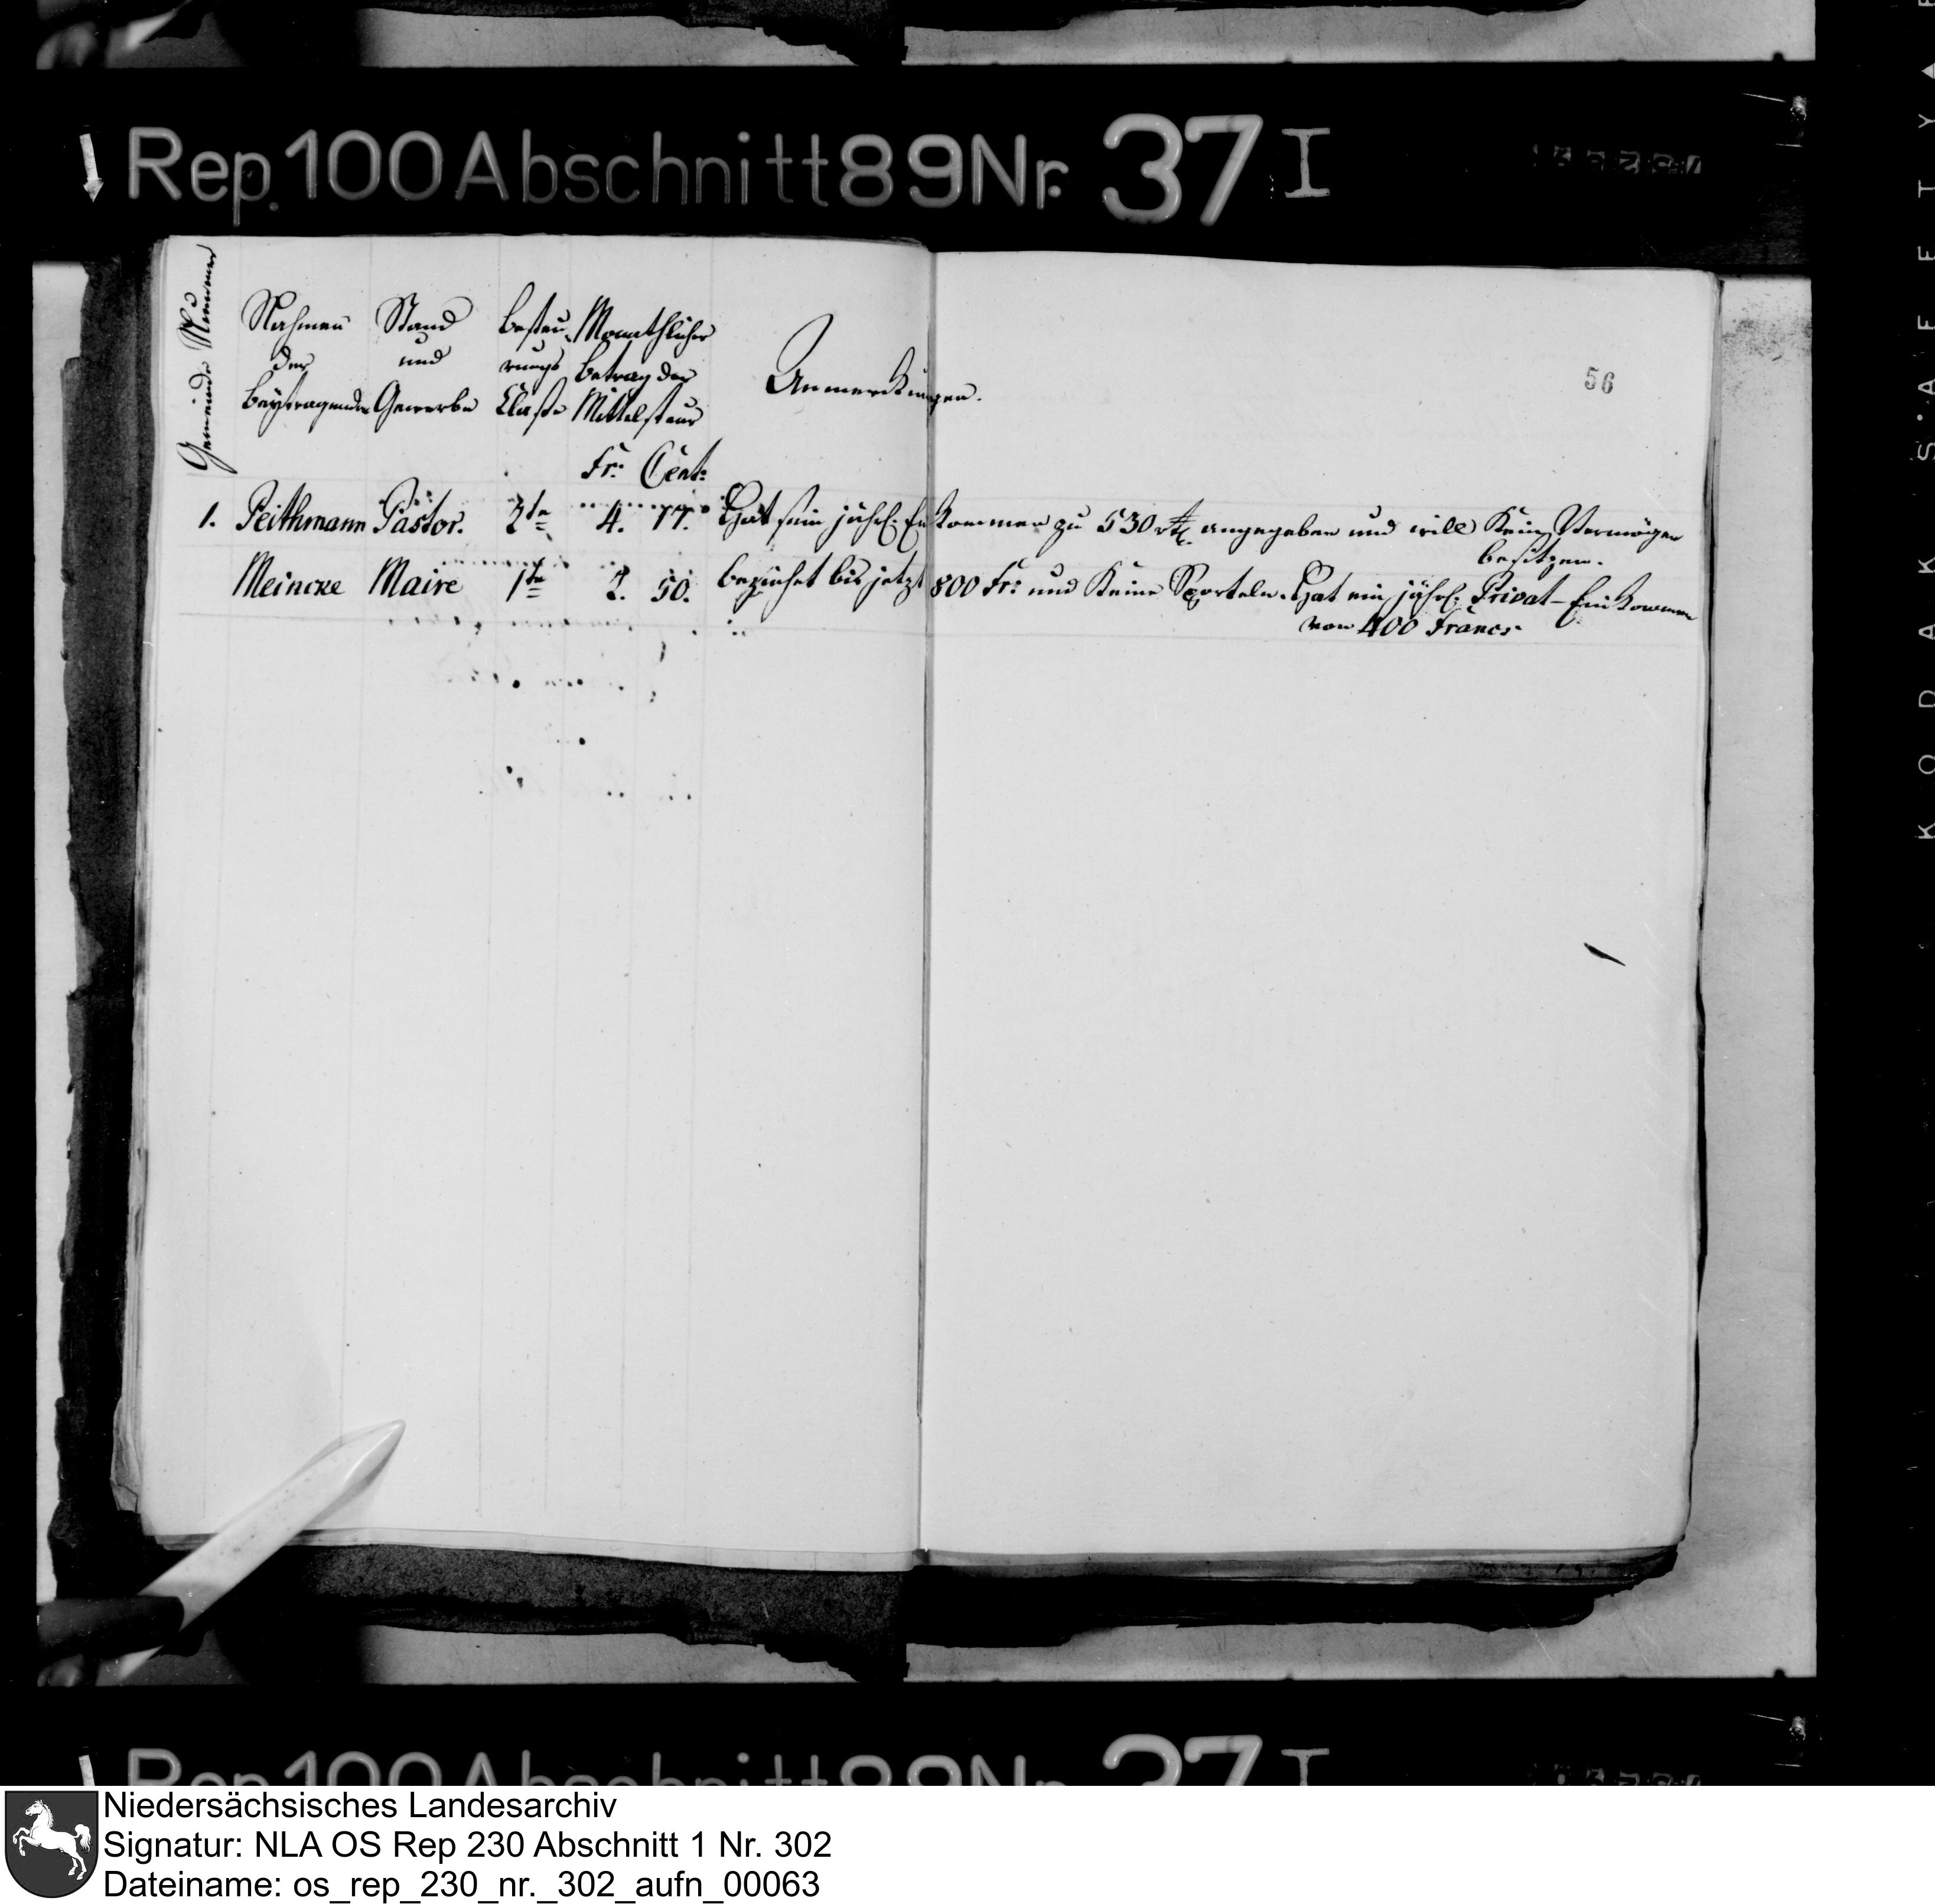 Rep. 100 Abschnitt 89 Nr. 37 I
56
Gemeinde Nummer
Nahmen der Beytragenden
Stand und Gewerbe
Besteu- rungs Classe
Monathlicher Betrag der Mittelsteur
Anmerkungen.
Fr: Cent:
1. Peithmann Pastor. 3te 4. 77. Hat sein jährl. Einkommen zu 530 rtl. angegeben und will Kein Vermögen
besitzen.
Meincke Maire 1te 2. 50. beziehet bis jetzt 800 Fr: und Keine Sporteln. Hat ein jährl. Privat-Einkommen
von 400 Francs
KODAK SAFETY
Rep. 100 Abschnitt 89 Nr. 37 I
Niedersächsisches Landesarchiv
Signatur: NLA OS Rep 230 Abschnitt 1 Nr. 302
Dateiname: os_rep_230_nr._302_aufn_00063